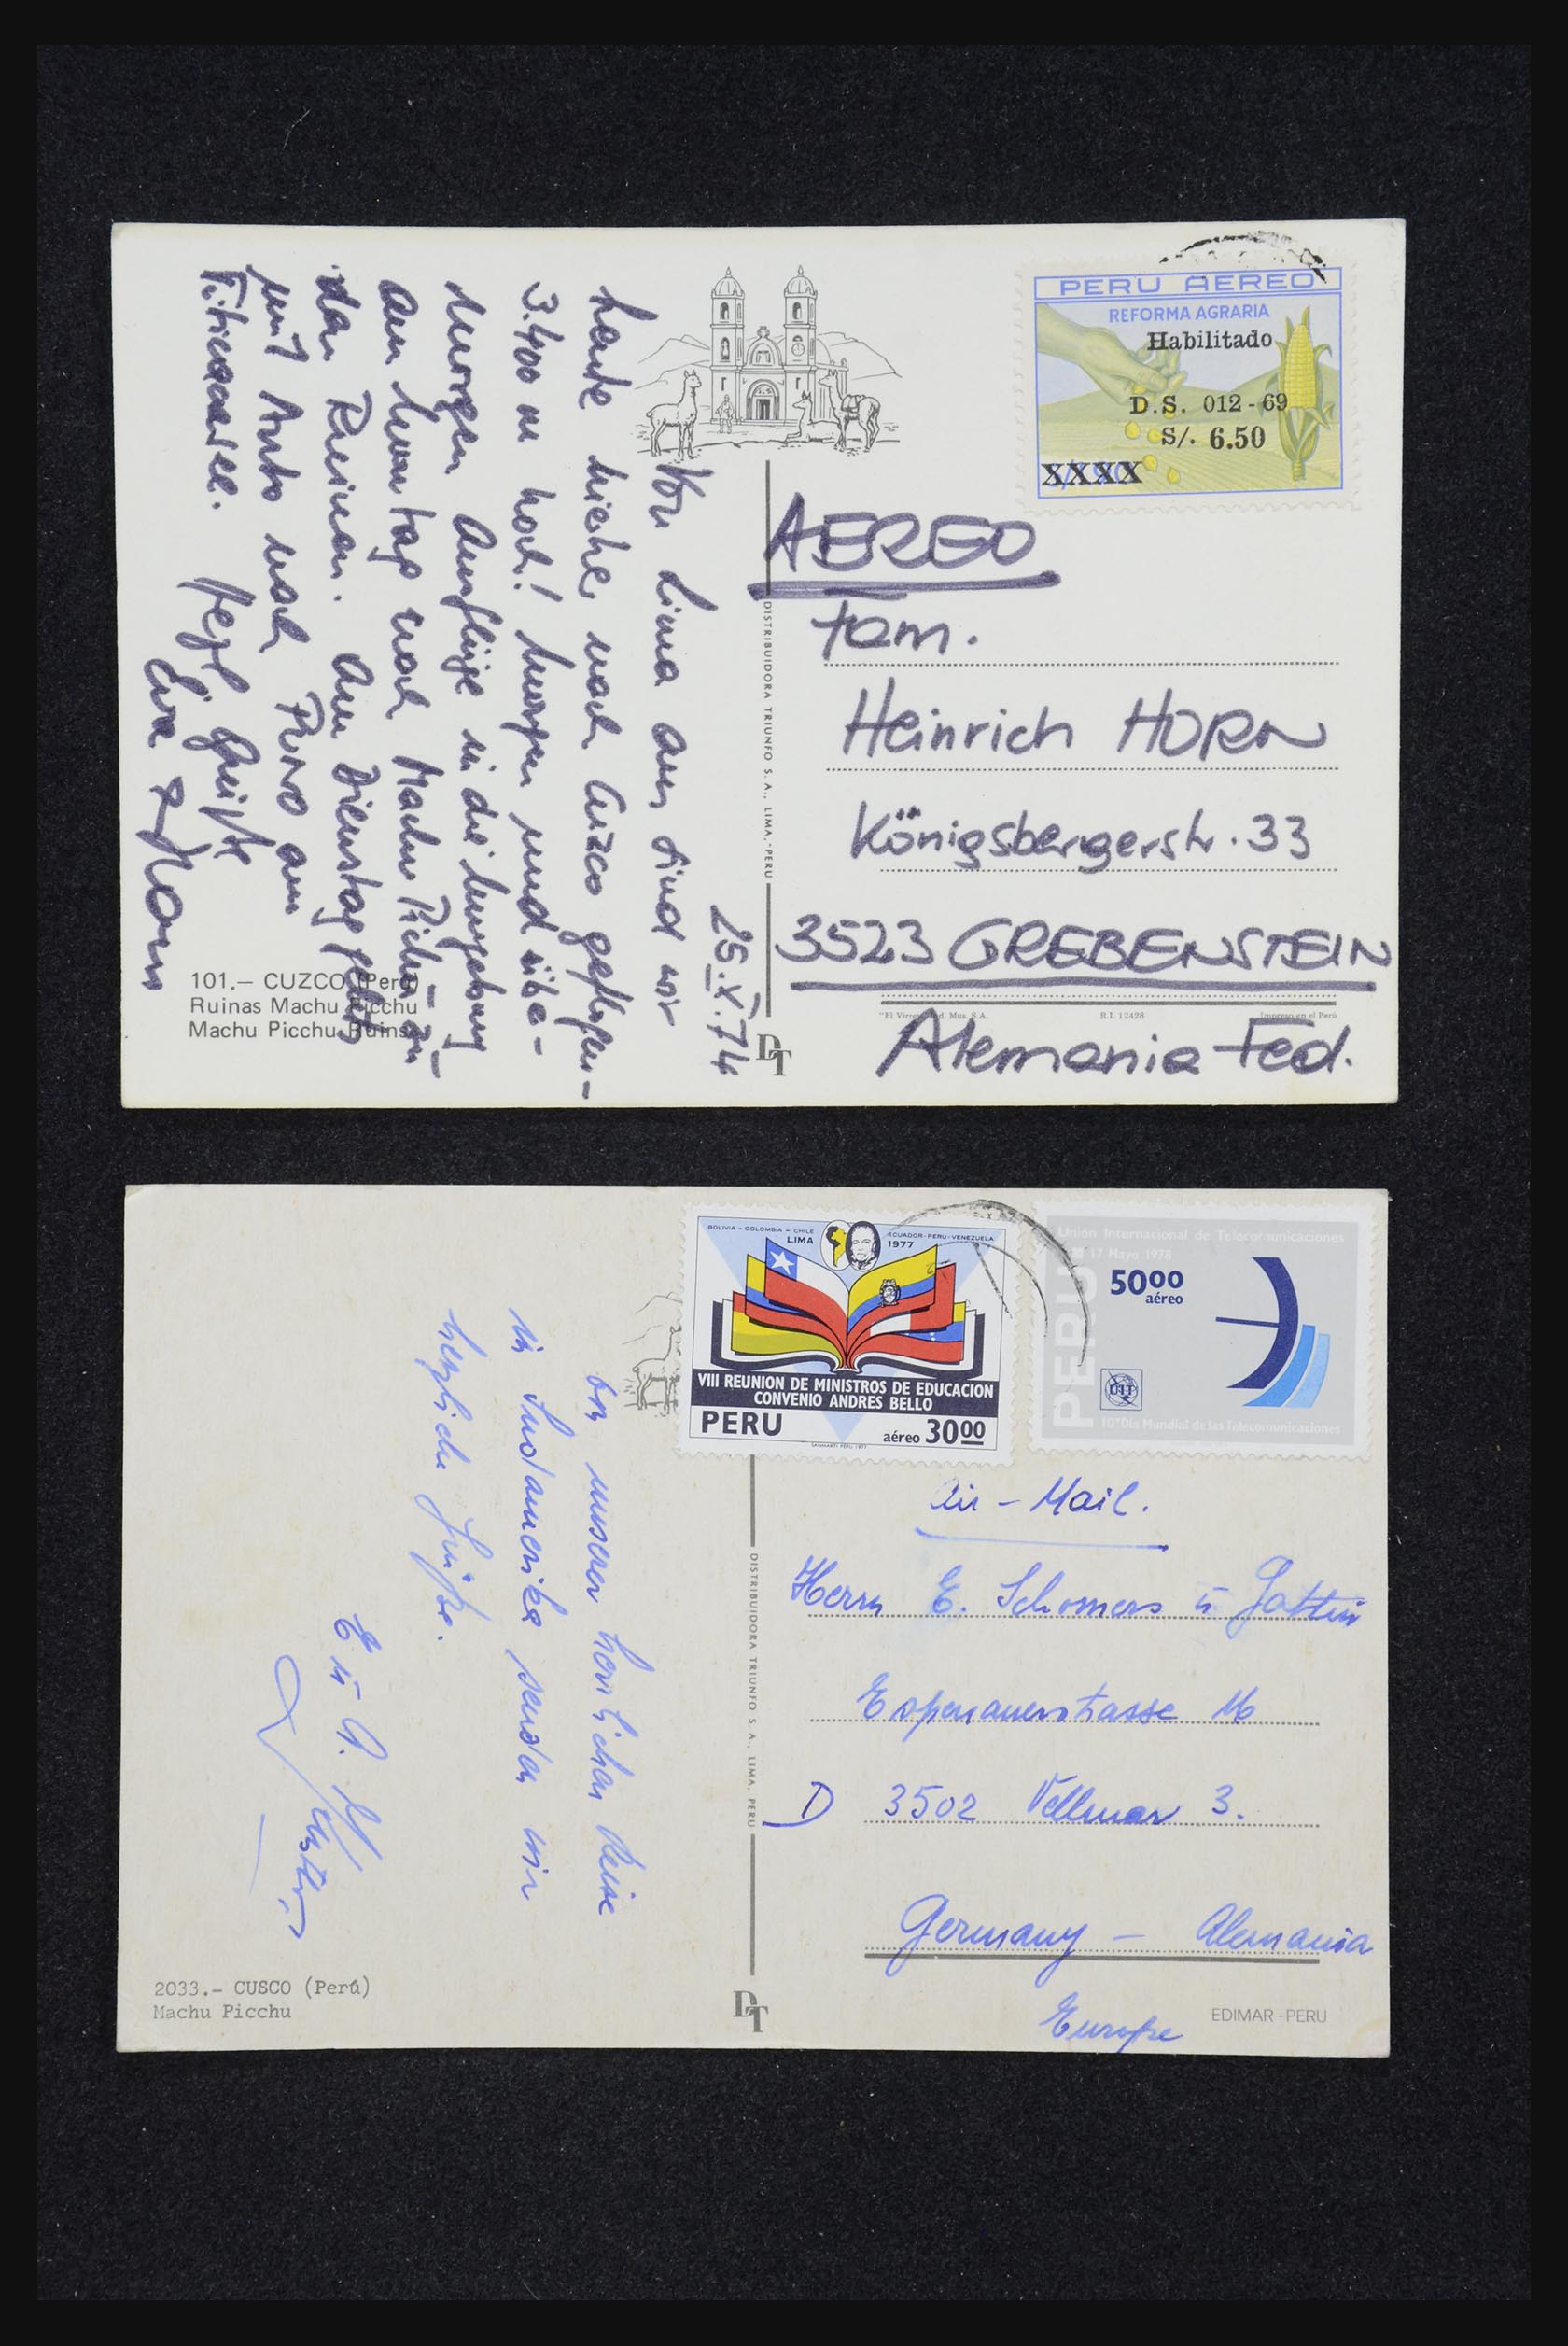 PERU AEREO
REFORMA AGRARIA
Habilitado
D.S. 012-69
S/. 6.50
XXXX
25.X.74
Von Lima aus sind wir
heute hierher nach Cuzco geflogen -
3.400 m hoch! Morgen und über-
morgen Ausflüge in die Umgebung
am Montag nach Machu Pichu - zu
den Ruinen. Am Dienstag geht's
mit Auto nach Puno am
Titicacasee. Herzl. Grüße
Eva
AEREO
Fam.
Heinrich HORN
Königsbergerstr. 33
3523 GREBENSTEIN
Alemania Fed.
DISTRIBUIDORA TRIUNFO S.A., LIMA,-PERU
DT
101.— CUZCO (Perú)
Ruinas Machu Picchu
Machu Picchu Ruins
R.I. 12428
Impreso en el Perú
BOLIVIA - COLOMBIA - CHILE
LIMA
ECUADOR - PERU - VENEZUELA
1977
VIII REUNION DE MINISTROS DE EDUCACION
CONVENIO ANDRES BELLO
PERU
aéreo 3000
Union Internacional de Telecomunicaciones
17 Mayo 1978
5000
aéreo
PERU
UIT
10° Dia Mundial de las Telecomunicaciones
von unserer herrlichen Reise
in Südamerika senden wir
herzliche Grüße.
E u. A.
Air - Mail.
Herrn E. Schomers u Gattin
Espenauerstrasse 16
D 3502 Vellmar 3.
Germany — Alemania
Europe
DISTRIBUIDORA TRIUNFO S.A., LIMA, PERU
DT
2033.- CUSCO (Perú)
Machu Picchu
EDIMAR-PERU